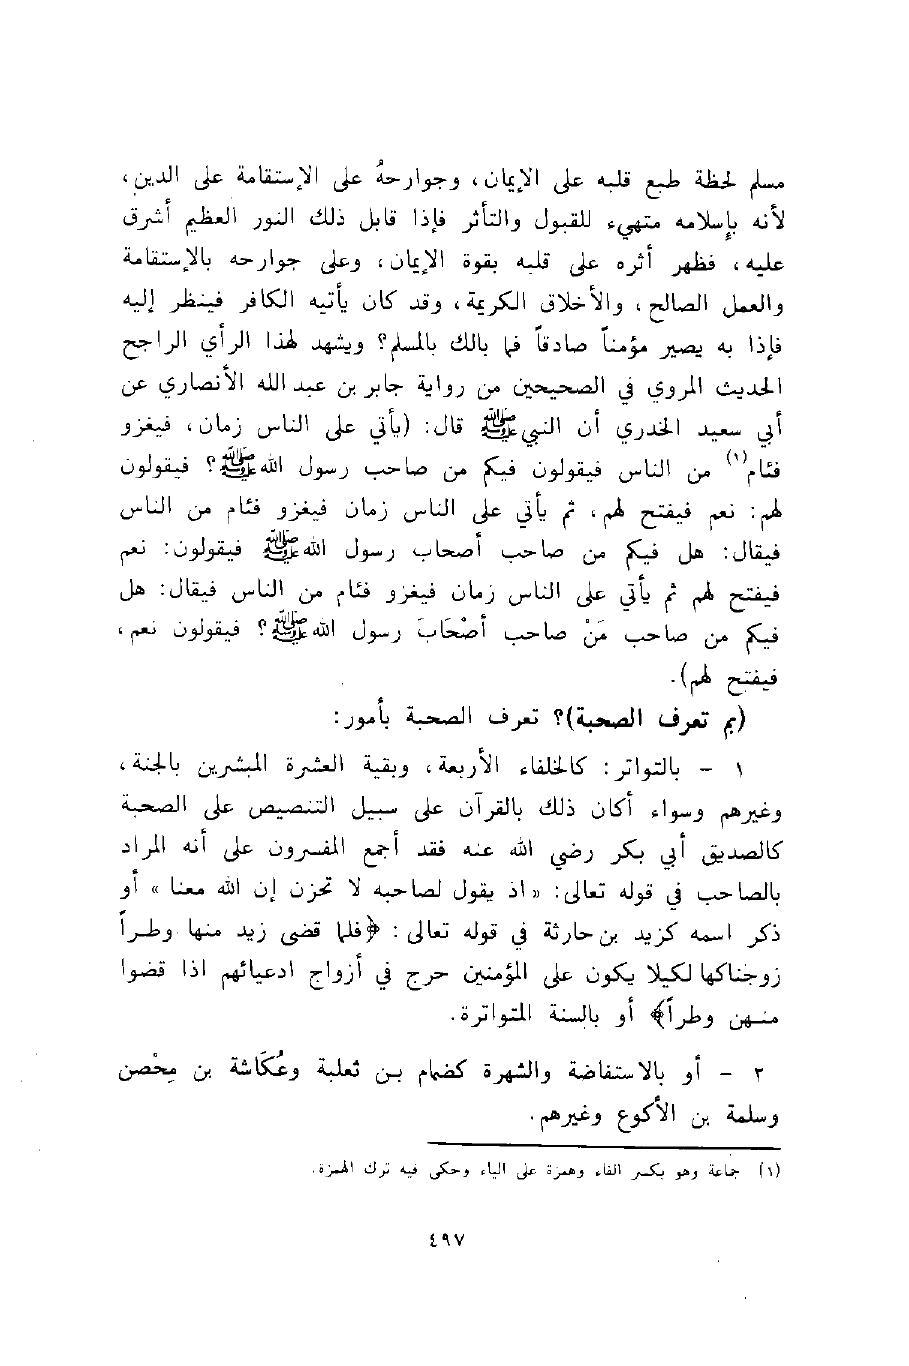 مسلم لحظة طبع قلبه على الإيمان، وجوارحهُ على الإستقامة على الدين،
لأنه بإسلامه متهيء للقبول والتأثر فإذا قابل ذلك النور العظيم أشرق
عليه، فظهر أثره على قلبه بقوة الإيمان، وعلى جوارحه بالإستقامة
والعمل الصالح، والأخلاق الكريمة، وقد كان يأتيه الكافر فينظر إليه
فإذا به يصير مؤمناً صادقاً فما بالك بالمسلم؟ ويشهد لهذا الرأي الراجح
الحديث المروي في الصحيحين من رواية جابر بن عبد الله الأنصاري عن
أبي سعيد الخدري أن النبي ﷺ قال: (يأتي على الناس زمان، فيغزو
فئام(١) من الناس فيقولون فيكم من صاحب رسول الله ﷺ؟ فيقولون
لهم: نعم فيفتح لهم، ثم يأتي على الناس زمان فيغزو فئام من الناس
فيقال: هل فيكم من صاحب أصحاب رسول الله ﷺ فيقولون: نعم
فيفتح لهم ثم يأتي على الناس زمان فيغزو فئام من الناس فيقال: هل
فيكم من صاحب مَنْ صاحب أصْحَابَ رسول الله ﷺ؟ فيقولون نعم،
فيفتح لهم).
(بم تعرف الصحبة)؟ تعرف الصحبة بأمور:
١ - بالتواتر: كالخلفاء الأربعة، وبقية العشرة المبشرين بالجنة،
وغيرهم وسواء أكان ذلك بالقرآن على سبيل التنصيص على الصحبة
كالصديق أبي بكر رضي الله عنه فقد أجمع المفسرون على أنه المراد
بالصاحب في قوله تعالى: «اذ يقول لصاحبه لا تحزن إن الله معنا» أو
ذكر اسمه كزيد بن حارثة في قوله تعالى: ﴿فلما قضى زيد منها وطراً
زوجناكها لكيلا يكون على المؤمنين حرج في أزواج ادعيائهم اذا قضوا
منهن وطراً﴾ أو بالسنة المتواترة.
٢ - أو بالاستفاضة والشهرة كضمام بن ثعلبة وعُكَاشة بن مِحْصن
وسلمة بن الأكوع وغيرهم.
(١) جماعة وهو بكسر الفاء وهمزة على الياء وحكى فيه ترك الهمزة.
٤٩٧